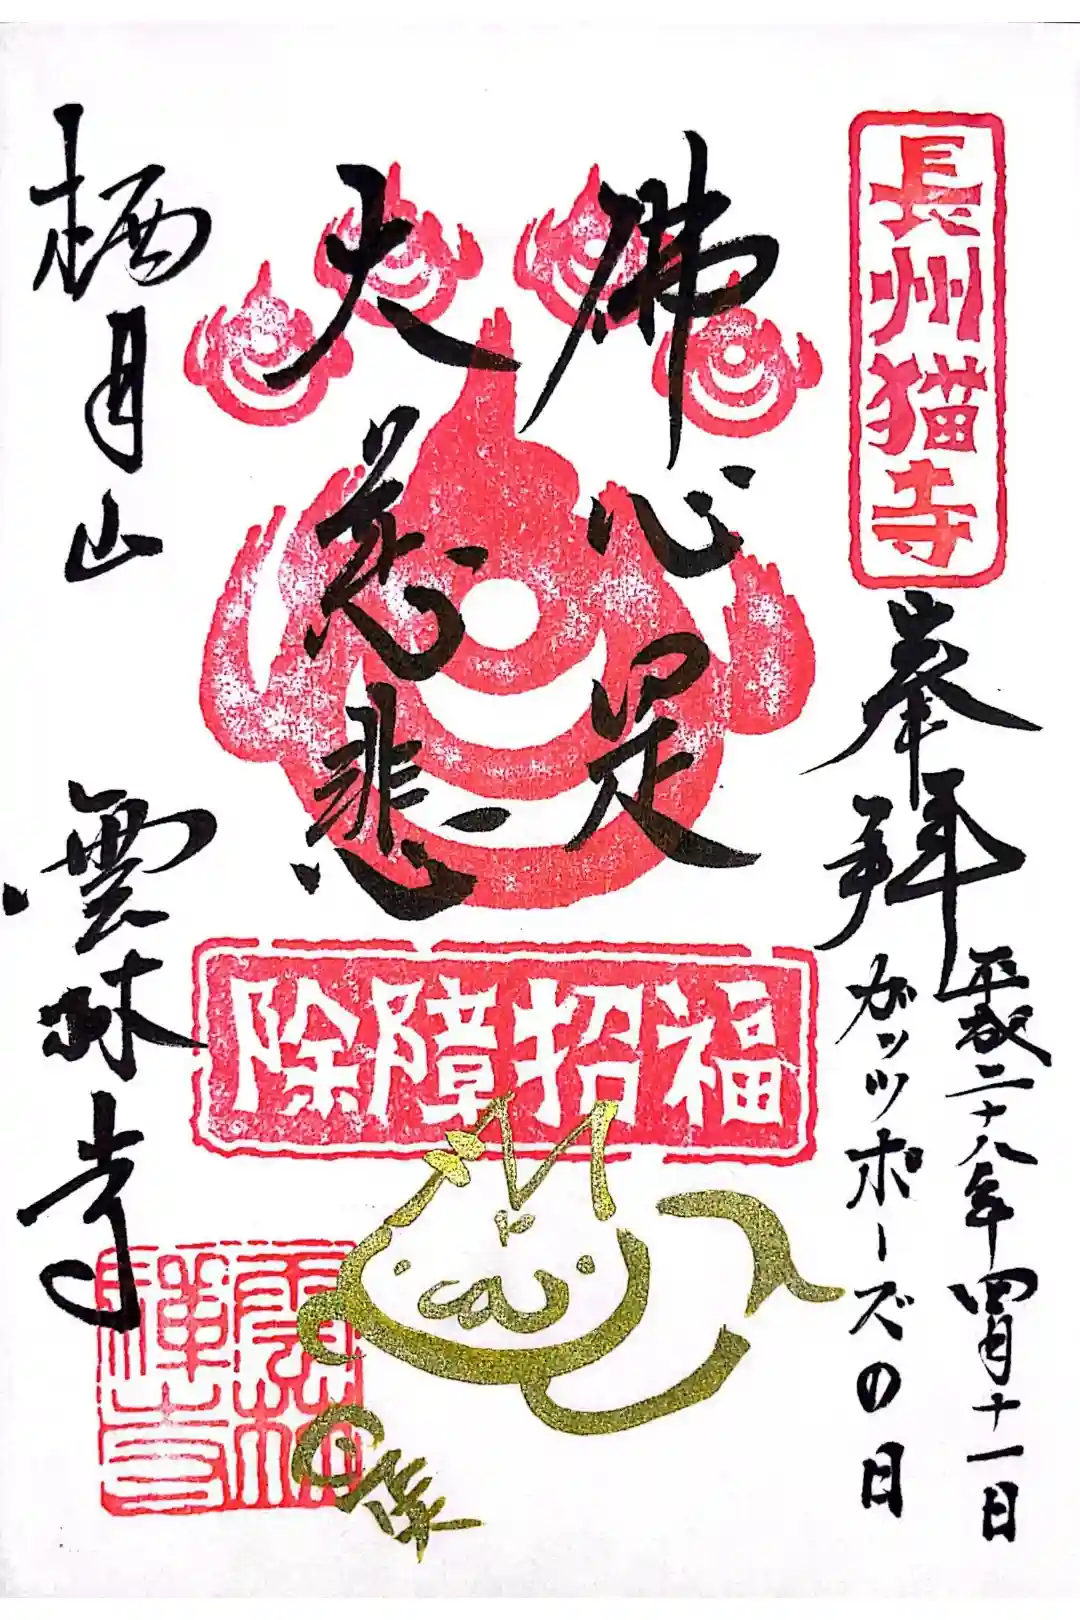 長州猫寺
奉拝
平成二十八年四月十一日
ガッツポーズの日
佛心足
大慈悲
除障招福
栖月山
雲林寺
雲林
禅寺